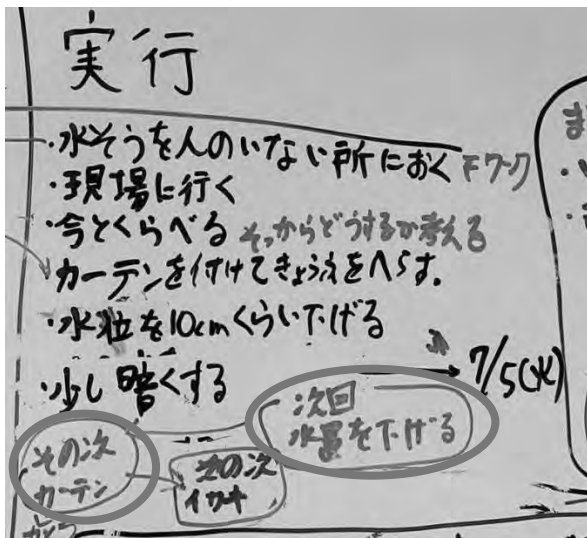 実行
・水そうを人のいない所におく Fワーク
・現場に行く
・今とくらべる そっからどうするか考える
・カーテンを付けてきょうふをへらす。
・水位を10cmくらい下げる
・少し暗くする
7/5(水)
次回
水量を下げる
その次
カーテン
次の次
ま